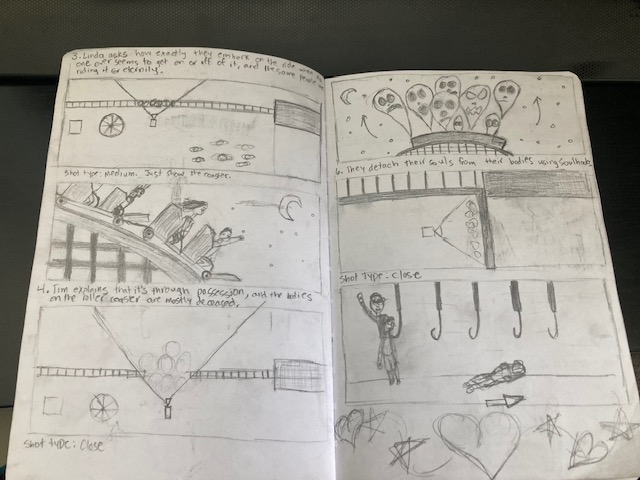 3. Linda asks how exactly they embark on the ride when no
one ever seems to get on or off of it, and the same people
riding it for eternity.
Shot type: Medium. Just show the coaster.
4. Tim explains that it's through possession, and the bodies
on the roller coaster are mostly deceased.
Shot type: Close
6. They detach their souls from their bodies using soulhooks
Shot Type: Close